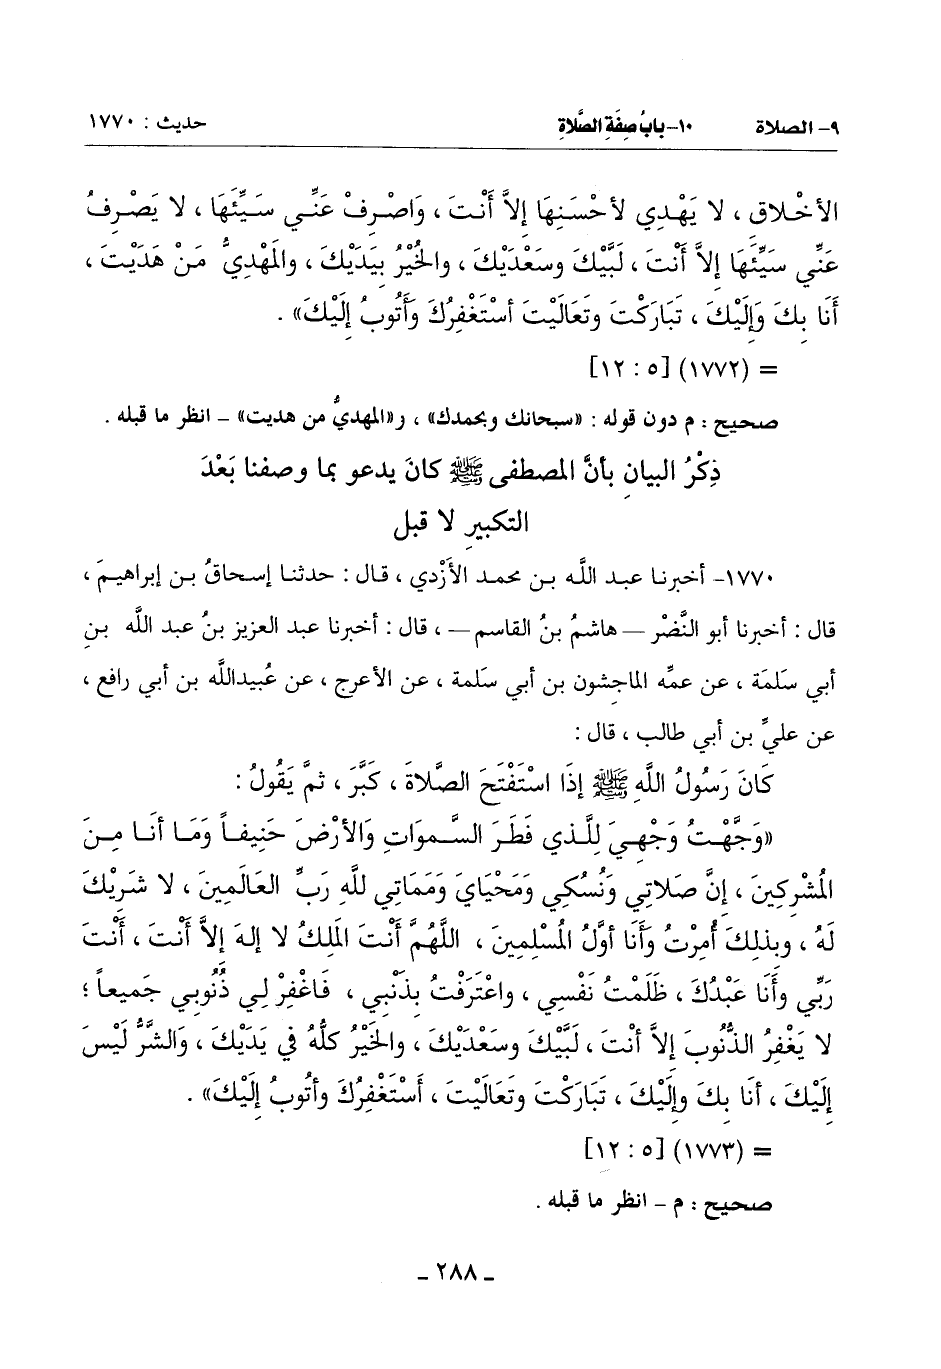 ٩- الصلاة ١٠- بابُ صِفَةِ الصَّلاةِ حديث : ١٧٧٠
الأخْلاق ، لا يَهْدِي لأحْسَنِهَا إلاَّ أَنْتَ ، وَاصْرِفْ عَنِّي سَيِّئَهَا ، لا يَصْرِفُ
عَنِّي سَيِّئَهَا إلاَّ أَنْتَ ، لَبَّيْكَ وسَعْدَيْكَ ، والخَيْرُ بِيَدَيْكَ ، والمَهْدِيُّ مَنْ هَدَيْتَ ،
أَنَا بِكَ وَإلَيْكَ ، تَبَارَكْتَ وتَعَالَيْتَ أسْتَغْفِرُكَ وَأَتُوبُ إلَيْكَ» .
= (١٧٧٢) [٥ : ١٢]
صحيح : م دون قوله : «سبحانك وبحمدك» ، و«المهديُّ من هديت» – انظر ما قبله .
ذِكْرُ البيانِ بأنَّ المصطفى ﷺ كانَ يدعو بما وصفنا بَعْدَ
التكبيرِ لا قبل
١٧٧٠- أخبرنا عبد اللَّه بن محمد الأَزْدي ، قال : حدثنا إسحاقُ بن إبراهيمَ ،
قال : أخبرنا أبو النَّضْر – هاشمُ بنُ القاسم – ، قال : أخبرنا عبد العزيز بنُ عبد اللَّه بنِ
أبي سَلَمَة ، عن عمِّه الماجشون بن أبي سَلَمة ، عن الأعرج ، عن عُبيداللَّه بن أبي رافع ،
عن عليِّ بن أبي طالب ، قال :
كَانَ رَسُولُ اللَّهِ ﷺ إذَا اسْتَفْتَحَ الصَّلاةَ ، كَبَّرَ ، ثمَّ يَقُولُ :
«وَجَّهْتُ وَجْهِيَ لِلَّذي فَطَرَ السَّموَاتِ وَالأَرْضَ حَنِيفاً وَمَا أَنا مِنَ
المُشْرِكِينَ ، إنَّ صَلاتِي وَنُسُكِي وَمَحْيَايَ وَمَمَاتِي للَّهِ رَبِّ العَالَمِينَ ، لا شَرِيْكَ
لَهُ ، وبذلِكَ أُمِرْتُ وَأَنَا أَوَّلُ المُسْلِمِينَ ، اللَّهُمَّ أَنْتَ المَلِكُ لا إلهَ إلاَّ أَنْتَ ، أَنْتَ
رَبِّي وأَنَا عَبْدُكَ ، ظَلَمْتُ نَفْسِي ، واعْتَرَفْتُ بذَنْبي ، فَاغْفِرْ لِي ذُنُوبِي جَمِيعاً ؛
لا يَغْفِرُ الذُّنُوبَ إلاَّ أنْتَ ، لَبَّيْكَ وسَعْدَيْكَ ، والخَيْرُ كلُّهُ في يَدَيْكَ ، وَالشَّرُّ لَيْسَ
إلَيْكَ ، أنَا بِكَ وإلَيْكَ ، تَبَارَكْتَ وتَعَالَيْتَ ، أَسْتَغْفِرُكَ وأتُوبُ إلَيْكَ» .
= (١٧٧٣) [٥ : ١٢]
صحيح : م – انظر ما قبله .
– ٢٨٨ –